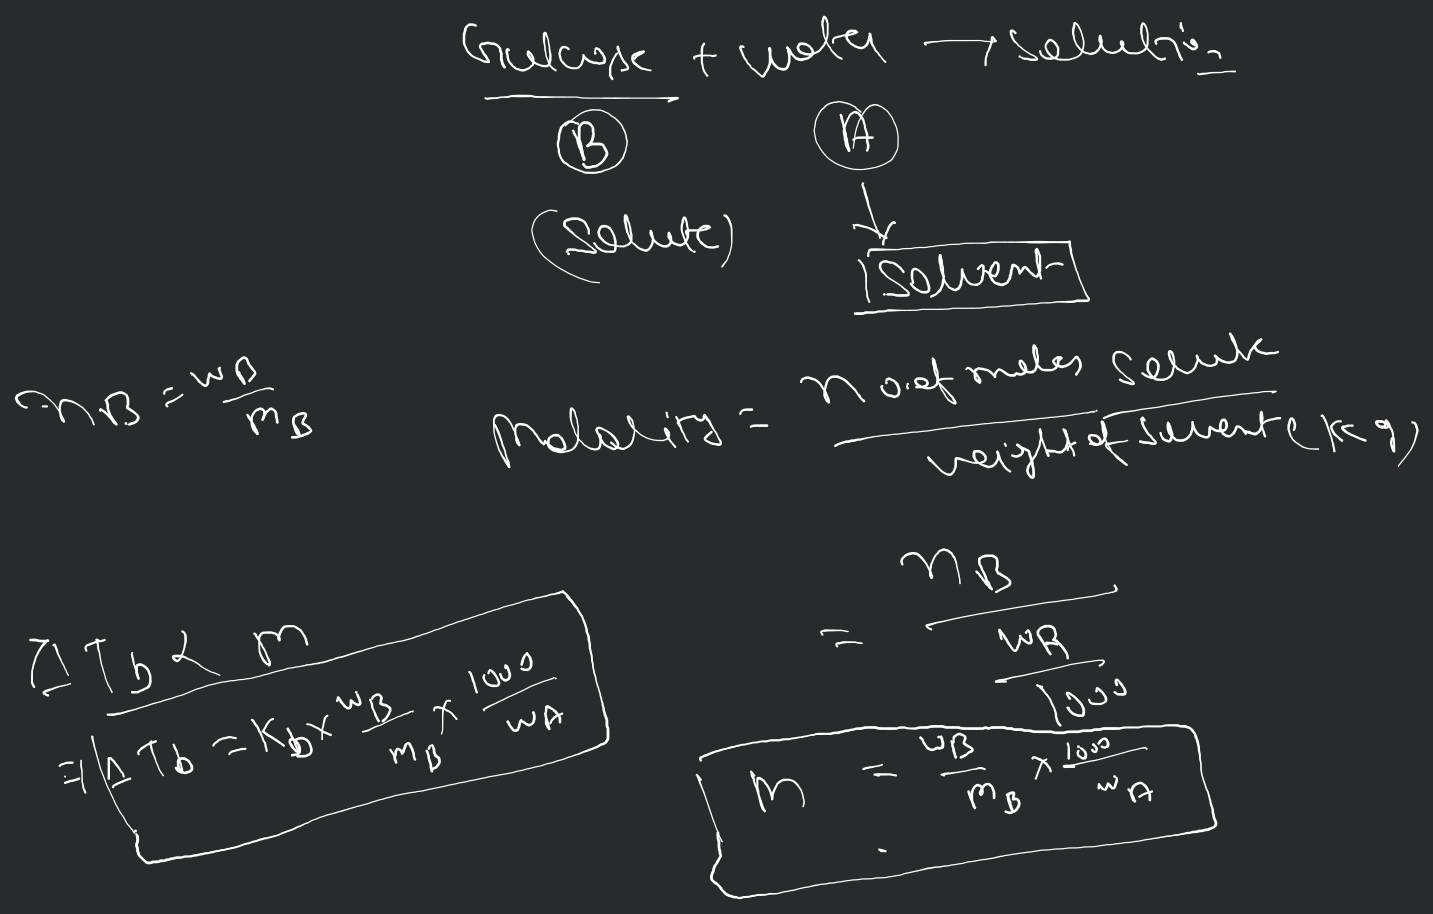 Glulcose + water → Solution
B A
(Solute)
Solvent
nB = wB / mB
Molality = no. of moles Solute / weight of Solvent (kg)
= nB / (wA / 1000)
ΔTb ∝ m
⇒ ΔTb = Kb × wB / mB × 1000 / wA
m = wB / mB × 1000 / wA